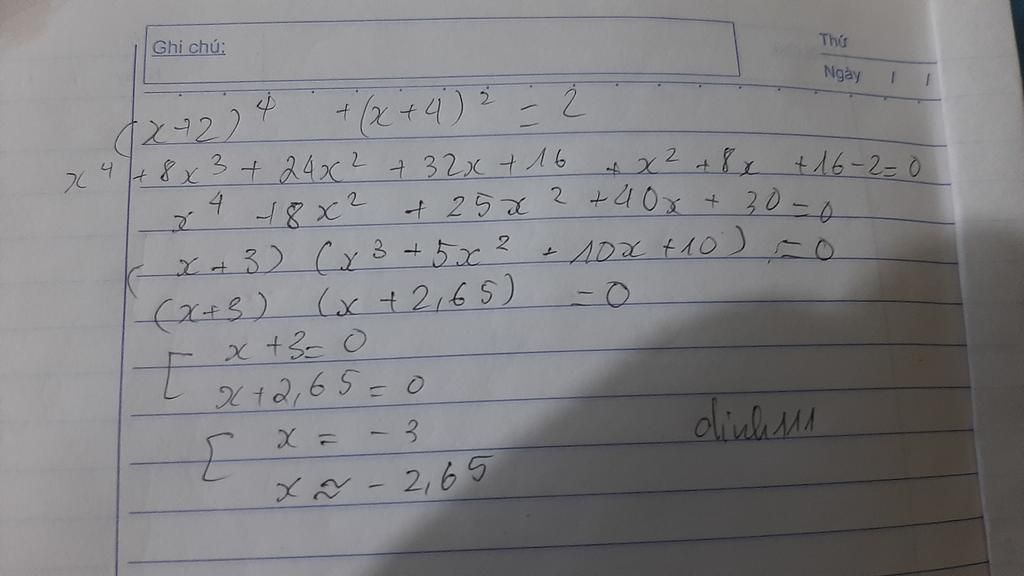 Ghi chú:
Thứ
Ngày / /
(x+2)⁴ + (x+4)² = 2
x⁴ + 8x³ + 24x² + 32x + 16 + x² + 8x + 16 - 2 = 0
x⁴ + 8x² + 25x² + 40x + 30 = 0
(x + 3) (x³ + 5x² + 10x + 10) = 0
(x+3) (x + 2,65) = 0
[ x + 3 = 0
x + 2,65 = 0
[ x = - 3
x ≈ - 2,65
dinh111